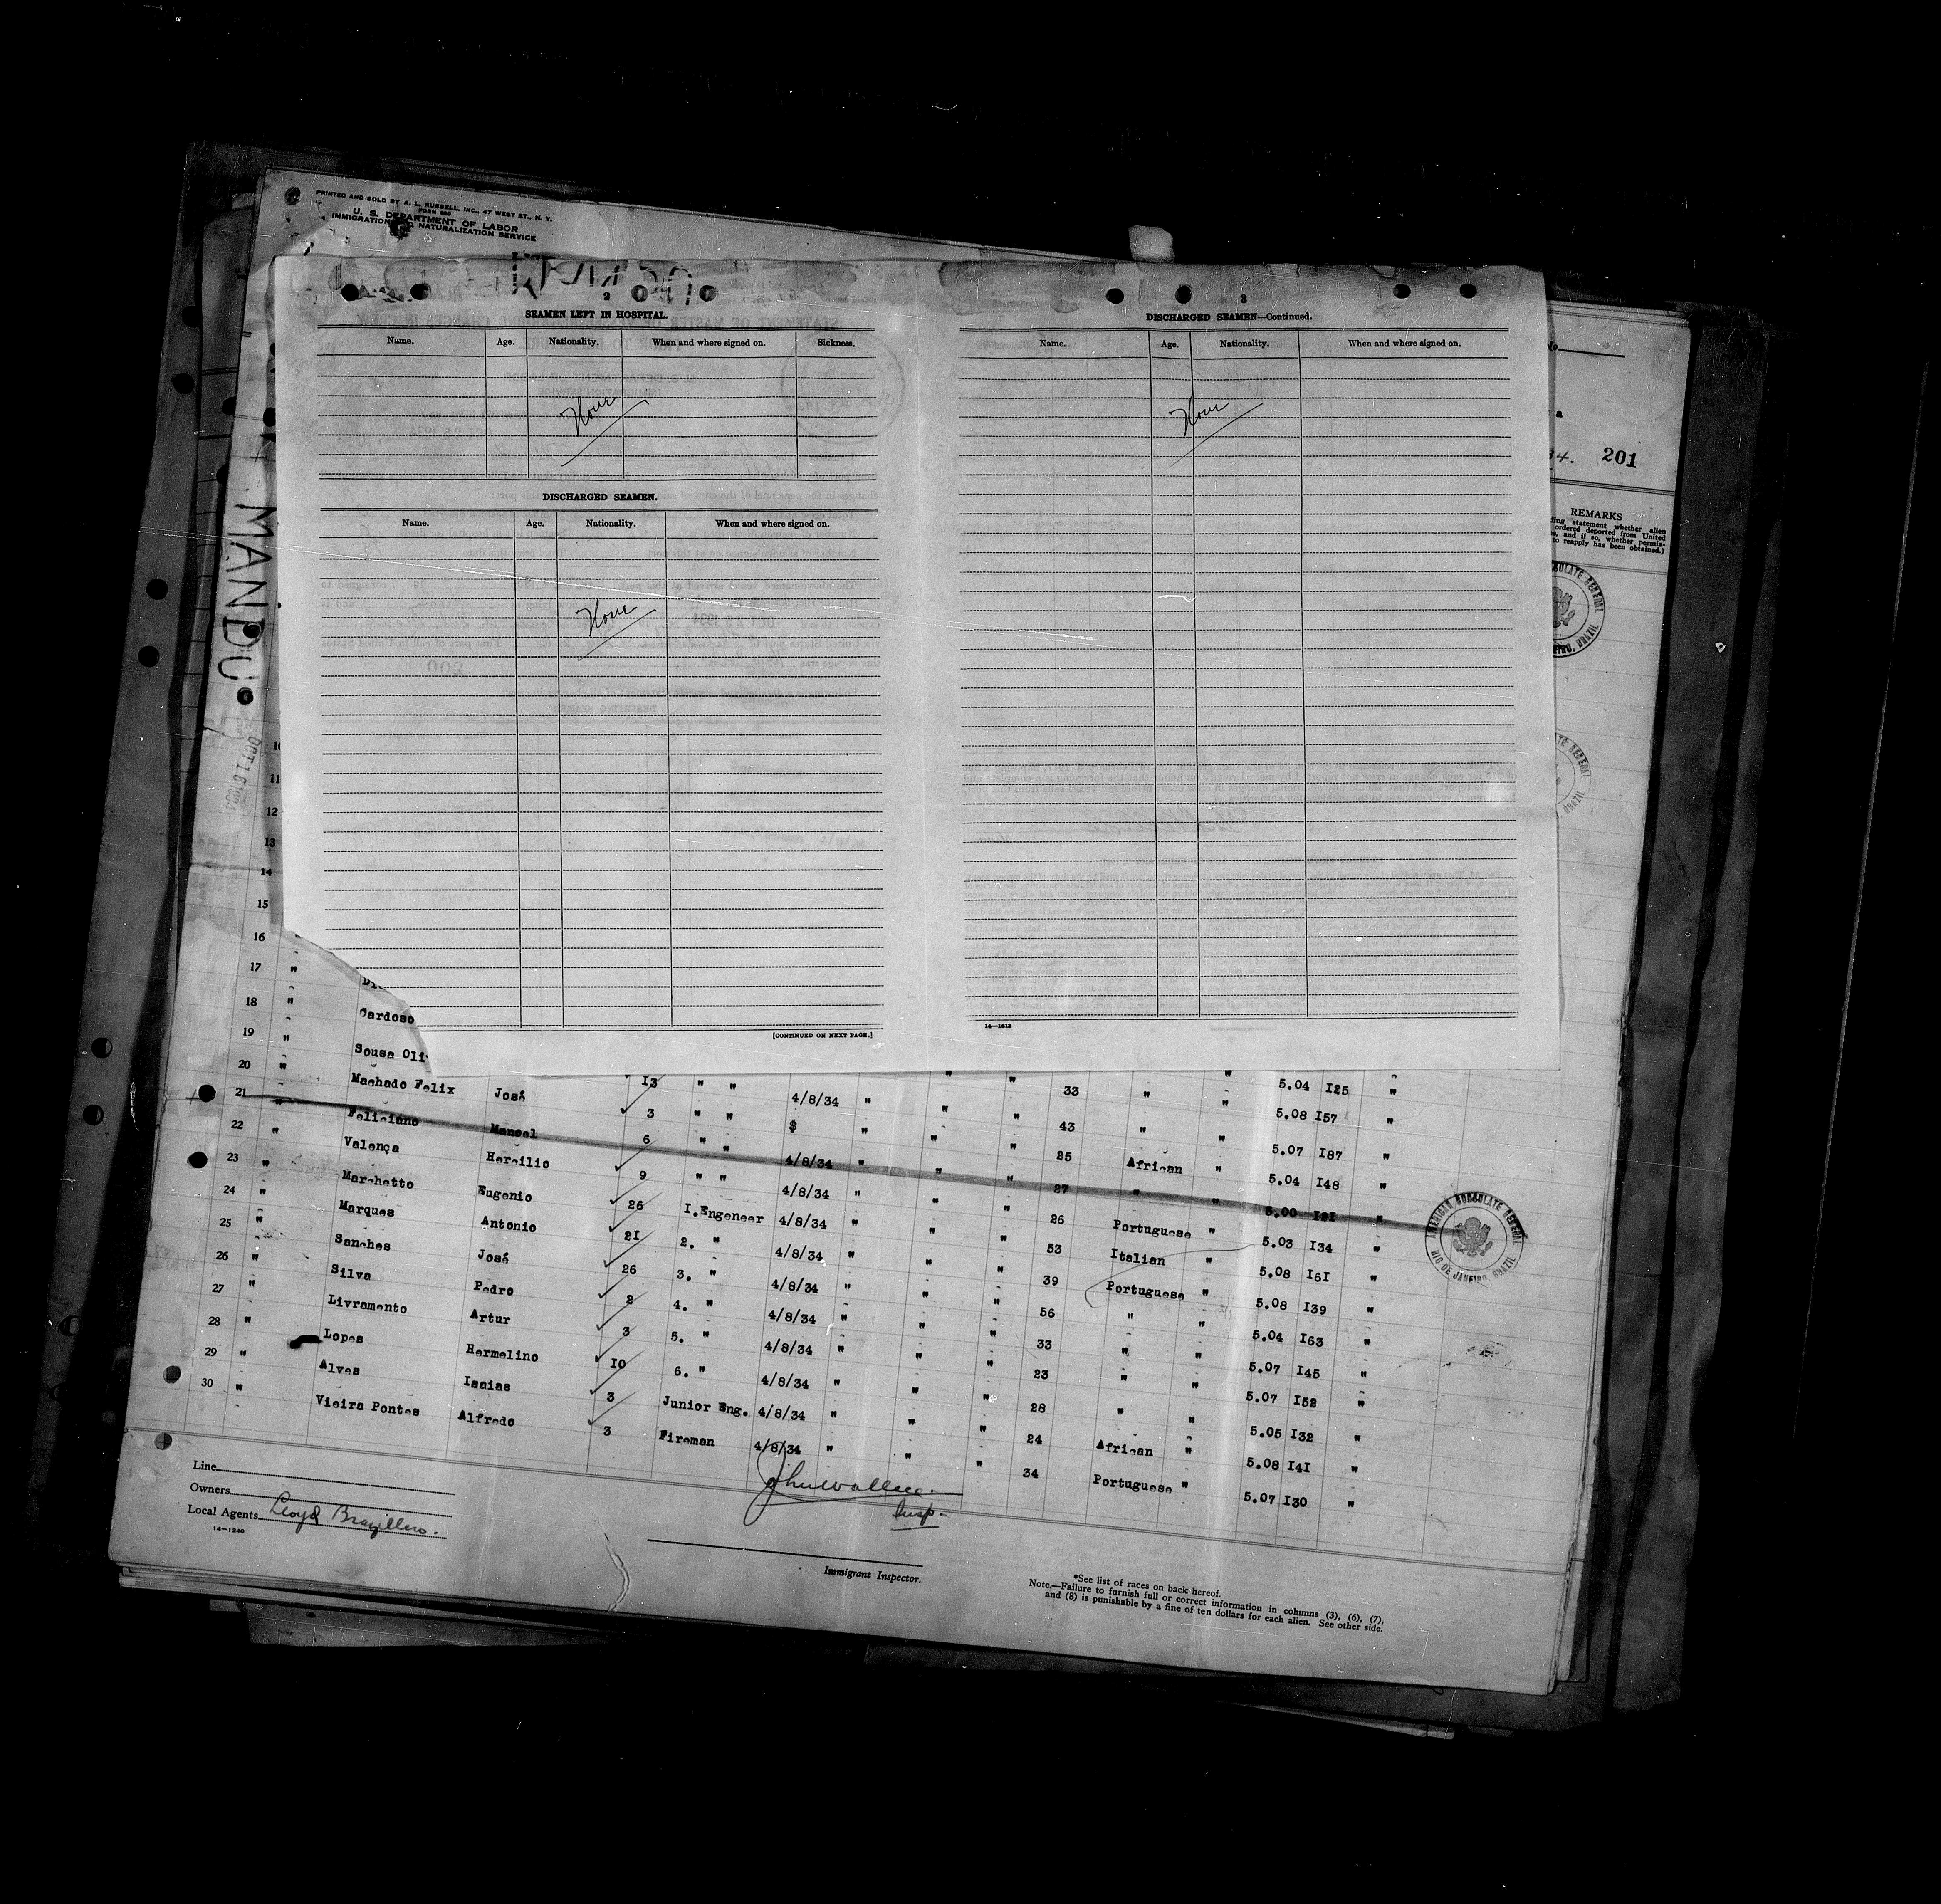 PRINTED AND SOLD BY A. L. RUSSELL, INC., 47 WEST ST., N. Y.
FORM 680
U. S. DEPARTMENT OF LABOR
IMMIGRATION AND NATURALIZATION SERVICE
MANDU
OCT 18 1934
2
SEAMEN LEFT IN HOSPITAL.
Name. Age. Nationality. When and where signed on. Sickness.
None
DISCHARGED SEAMEN.
Name. Age. Nationality. When and where signed on.
None
[CONTINUED ON NEXT PAGE.]
3
DISCHARGED SEAMEN—Continued.
Name. Age. Nationality. When and where signed on.
None
14—1612
34. 201
REMARKS
statement whether alien
ordered deported from United
and if so, whether permis-
to reapply has been obtained.)
10
11
12
13
14
15
16
17 " 5.04 I25 "
18 " Cardoso 33 " " 5.08 I57 "
19 " Sousa Oli I3 " " 4/8/34 " " " 43 " " 5.07 I87 "
20 " Machado Felix José 3 " " $ " " " 25 African " 5.04 I48 "
21 " Feliciano Manoel 6 " " 4/8/34 " " " 27 " " 5.00 I2I "
22 " Valença Hercilio 9 " " 4/8/34 " " " 26 Portuguese " 5.03 I34 "
23 " Marchetto Eugenio 26 I.Engeneer 4/8/34 " " " 53 Italian " 5.08 I6I "
24 " Marques Antonio 2I 2. " 4/8/34 " " " 39 Portuguese " 5.08 I39 "
25 " Sanches José 26 3. " 4/8/34 " " " 56 " " 5.04 I63 "
26 " Silva Pedro 2 4. " 4/8/34 " " " 33 " " 5.07 I45 "
27 " Livramento Artur 3 5. " 4/8/34 " " " 23 " " 5.07 I52 "
28 " Lopes Hermelino IO 6. " 4/8/34 " " " 28 " " 5.05 I32 "
29 " Alves Isaias 3 Junior Eng. 4/8/34 " " " 24 African " 5.08 I4I "
30 " Vieira Pontes Alfredo 3 Fireman 4/8/34 " " " 34 Portuguese " 5.07 I30 "
AMERICAN CONSULATE GENERAL
RIO DE JANEIRO, BRAZIL
Line
Owners
Local Agents Lloyd Brazillero.
14—1240
John Wallace
Insp.
Immigrant Inspector.
*See list of races on back hereof.
Note.—Failure to furnish full or correct information in columns (3), (6), (7),
and (8) is punishable by a fine of ten dollars for each alien. See other side.